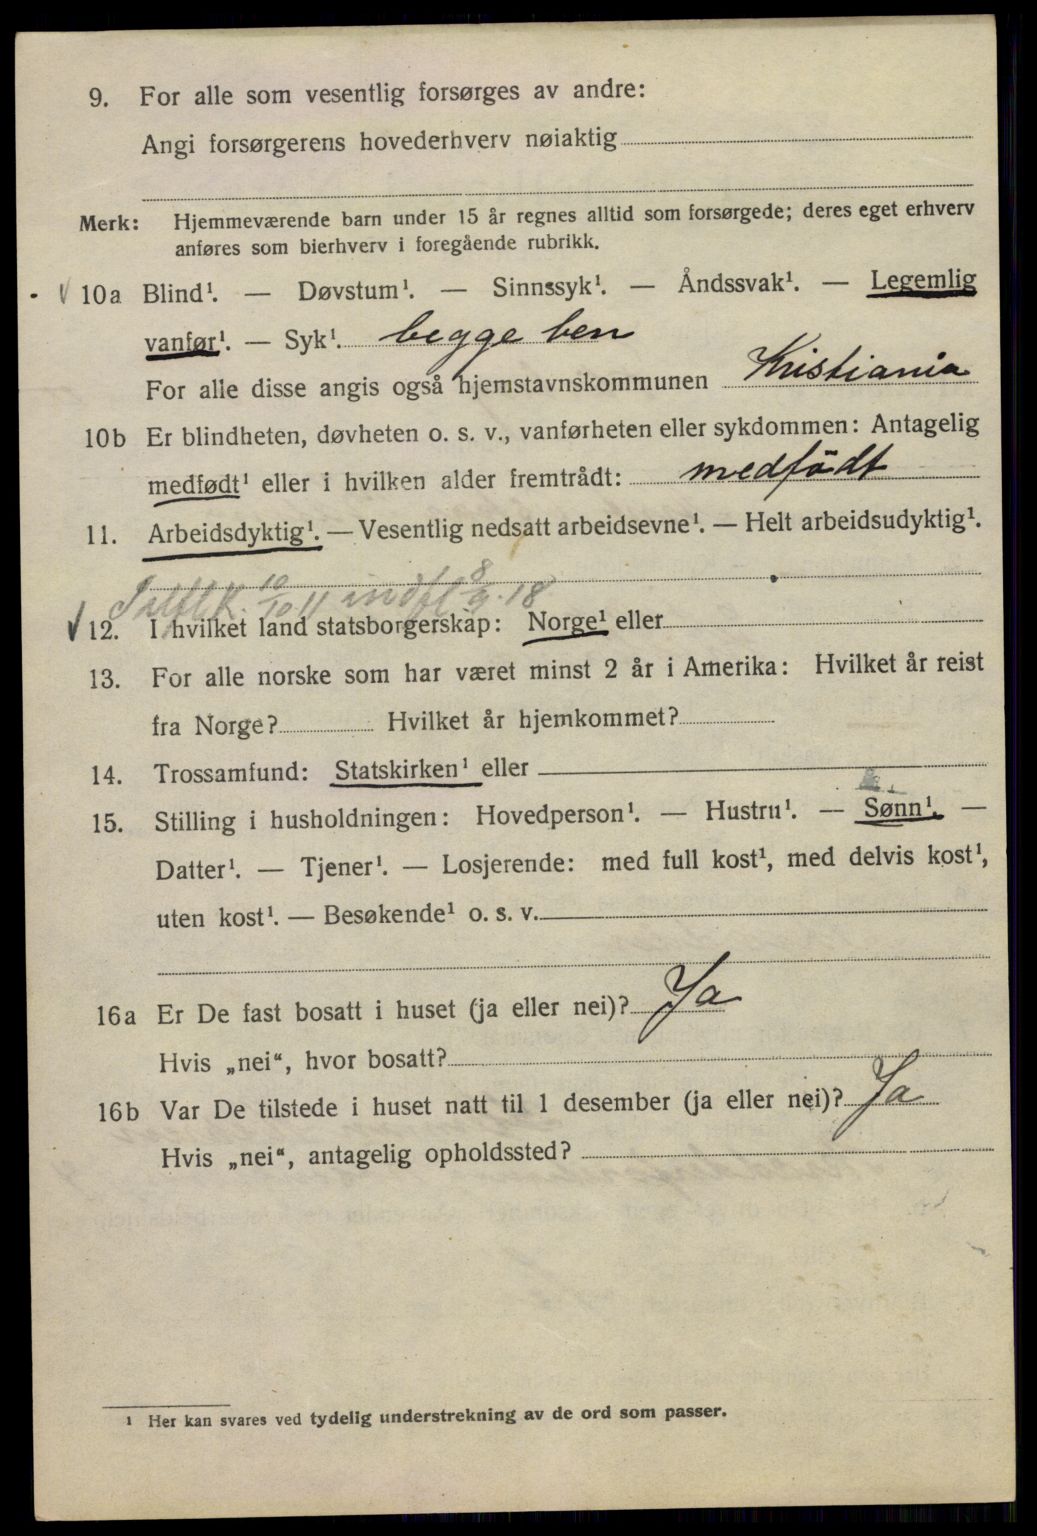 9. For alle som vesentlig forsørges av andre:
Angi forsørgerens hovederhverv nøiaktig
Merk: Hjemmeværende barn under 15 år regnes alltid som forsørgede; deres eget erhverv
anføres som bierhverv i foregående rubrikk.
10a Blind¹. — Døvstum¹. — Sinnssyk¹. — Åndssvak¹. — Legemlig
vanfør¹. — Syk¹. begge ben
For alle disse angis også hjemstavnskommunen Kristiania
10b Er blindheten, døvheten o. s. v., vanførheten eller sykdommen: Antagelig
medfødt¹ eller i hvilken alder fremtrådt: medfödt
11. Arbeidsdyktig¹. — Vesentlig nedsatt arbeidsevne¹. — Helt arbeidsudyktig¹.
10/10 11 indfl 8/9. 18
12. I hvilket land statsborgerskap: Norge¹ eller
13. For alle norske som har været minst 2 år i Amerika: Hvilket år reist
fra Norge? Hvilket år hjemkommet?
14. Trossamfund: Statskirken¹ eller
15. Stilling i husholdningen: Hovedperson¹. — Hustru¹. — Sønn¹. —
Datter¹. — Tjener¹. — Losjerende: med full kost¹, med delvis kost¹,
uten kost¹. — Besøkende¹ o. s. v.
16a Er De fast bosatt i huset (ja eller nei)? Ja
Hvis „nei“, hvor bosatt?
16b Var De tilstede i huset natt til 1 desember (ja eller nei)? Ja
Hvis „nei“, antagelig opholdssted?
¹ Her kan svares ved tydelig understrekning av de ord som passer.